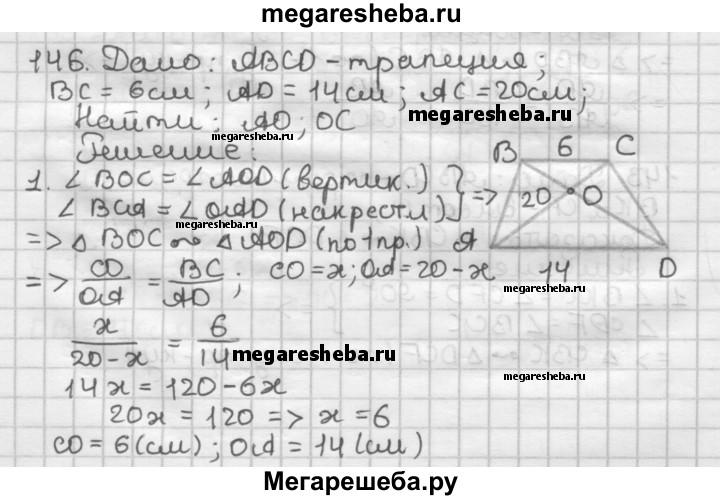 megaresheba.ru
146. Дано: ABCD - трапеция;
BC = 6см; AD = 14см; AC = 20см;
megaresheba.ru
Найти: AO; OC
megaresheba.ru
Решение:
B 6 C
1. ∠ BOC = ∠ AOD (вертик.) } =>
20 O
∠ BCA = ∠ OAD (накрест л)
megaresheba.ru
=> △ BOC ∾ △ AOD (по 1 пр.)
A 14 D
=> CO/OA = BC/AD; CO = x; OA = 20 - x
megaresheba.ru
x/20-x = 6/14
megaresheba.ru
14x = 120 - 6x
megaresheba.ru
20x = 120 => x = 6
CO = 6(см); OA = 14(см)
Мегарешеба.ру